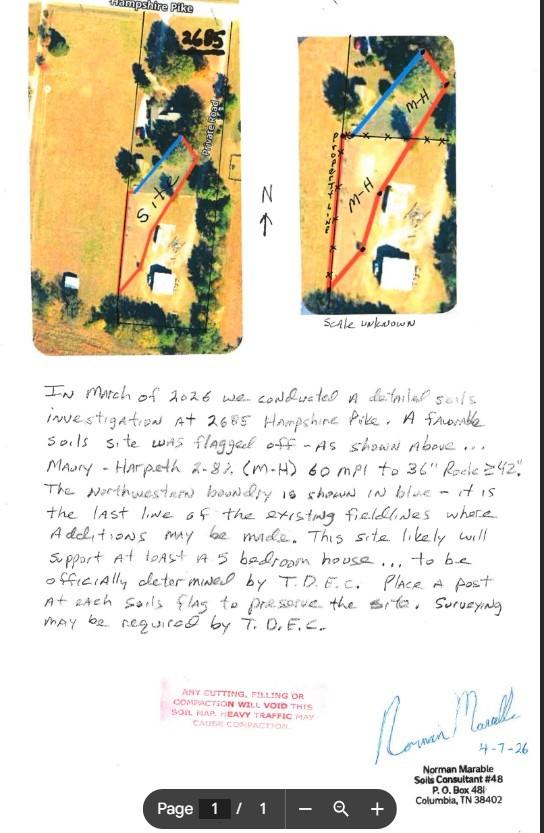 Hampshire Pike
2685
Private Road
Site
N
M-H
PROPERTY LINE
M-H
Scale unknown
In March of 2026 we conducted a detailed soils
investigation at 2685 Hampshire Pike. A favorable
soils site was flagged off - As shown above ...
Maury - Harpeth 2-8% (M-H) 60 mpi to 36" Rock ≥42".
The northwestern boundry is shown in blue - it is
the last line of the existing fieldlines where
Additions may be made. This site likely will
support at least a 5 bedroom house ... to be
officially determined by T.D.E.C. Place a post
at each soils flag to preserve the site. Surveying
may be required by T.D.E.C.
ANY CUTTING, FILLING OR
COMPACTION WILL VOID THIS
SOIL MAP. HEAVY TRAFFIC MAY
CAUSE COMPACTION.
Norman Marable
4-7-26
Norman Marable
Soils Consultant #48
P. O. Box 481
Columbia, TN 38402
Page 1 / 1